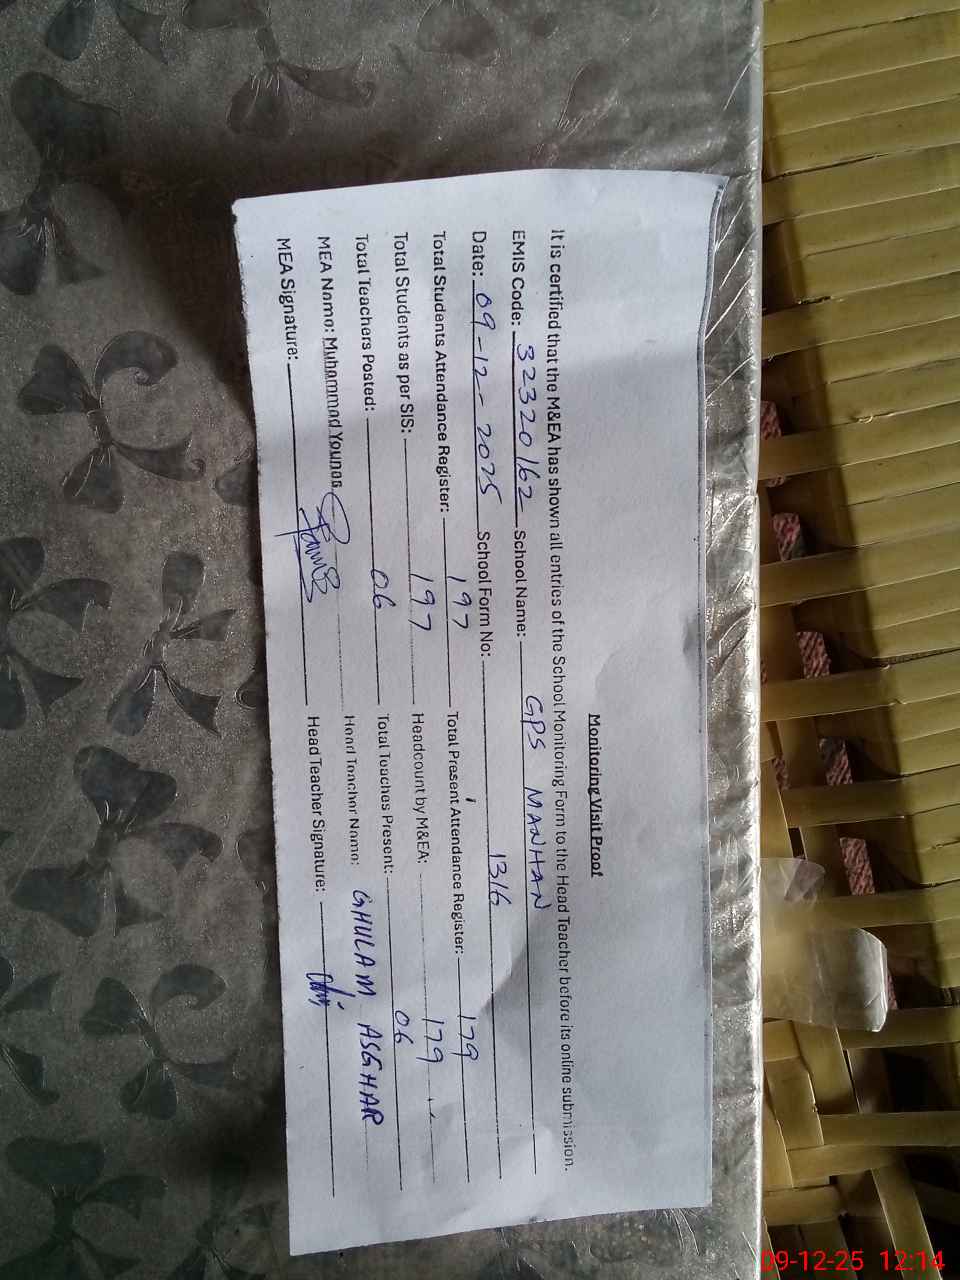 Monitoring Visit Proof
It is certified that the M&EA has shown all entries of the School Monitoring Form to the Head Teacher before its online submission.
EMIS Code: 32320162 School Name: GPS MANHAN
Date: 09-12-2025 School Form No: 1316
Total Students Attendance Register: 197 Total Present Attendance Register: 179
Total Students as per SIS: 197 Headcount by M&EA: 179
Total Teachers Posted: 06 Total Teaches Present: 06
MEA Name: Muhammad Younas Head Teacher Name: GHULAM ASGHAR
MEA Signature: Head Teacher Signature:
09-12-25 12:14